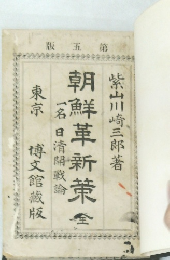 第五版
紫山川崎三郎著
朝鮮革新策 全
一名日清開戰論
東京 博文館藏版